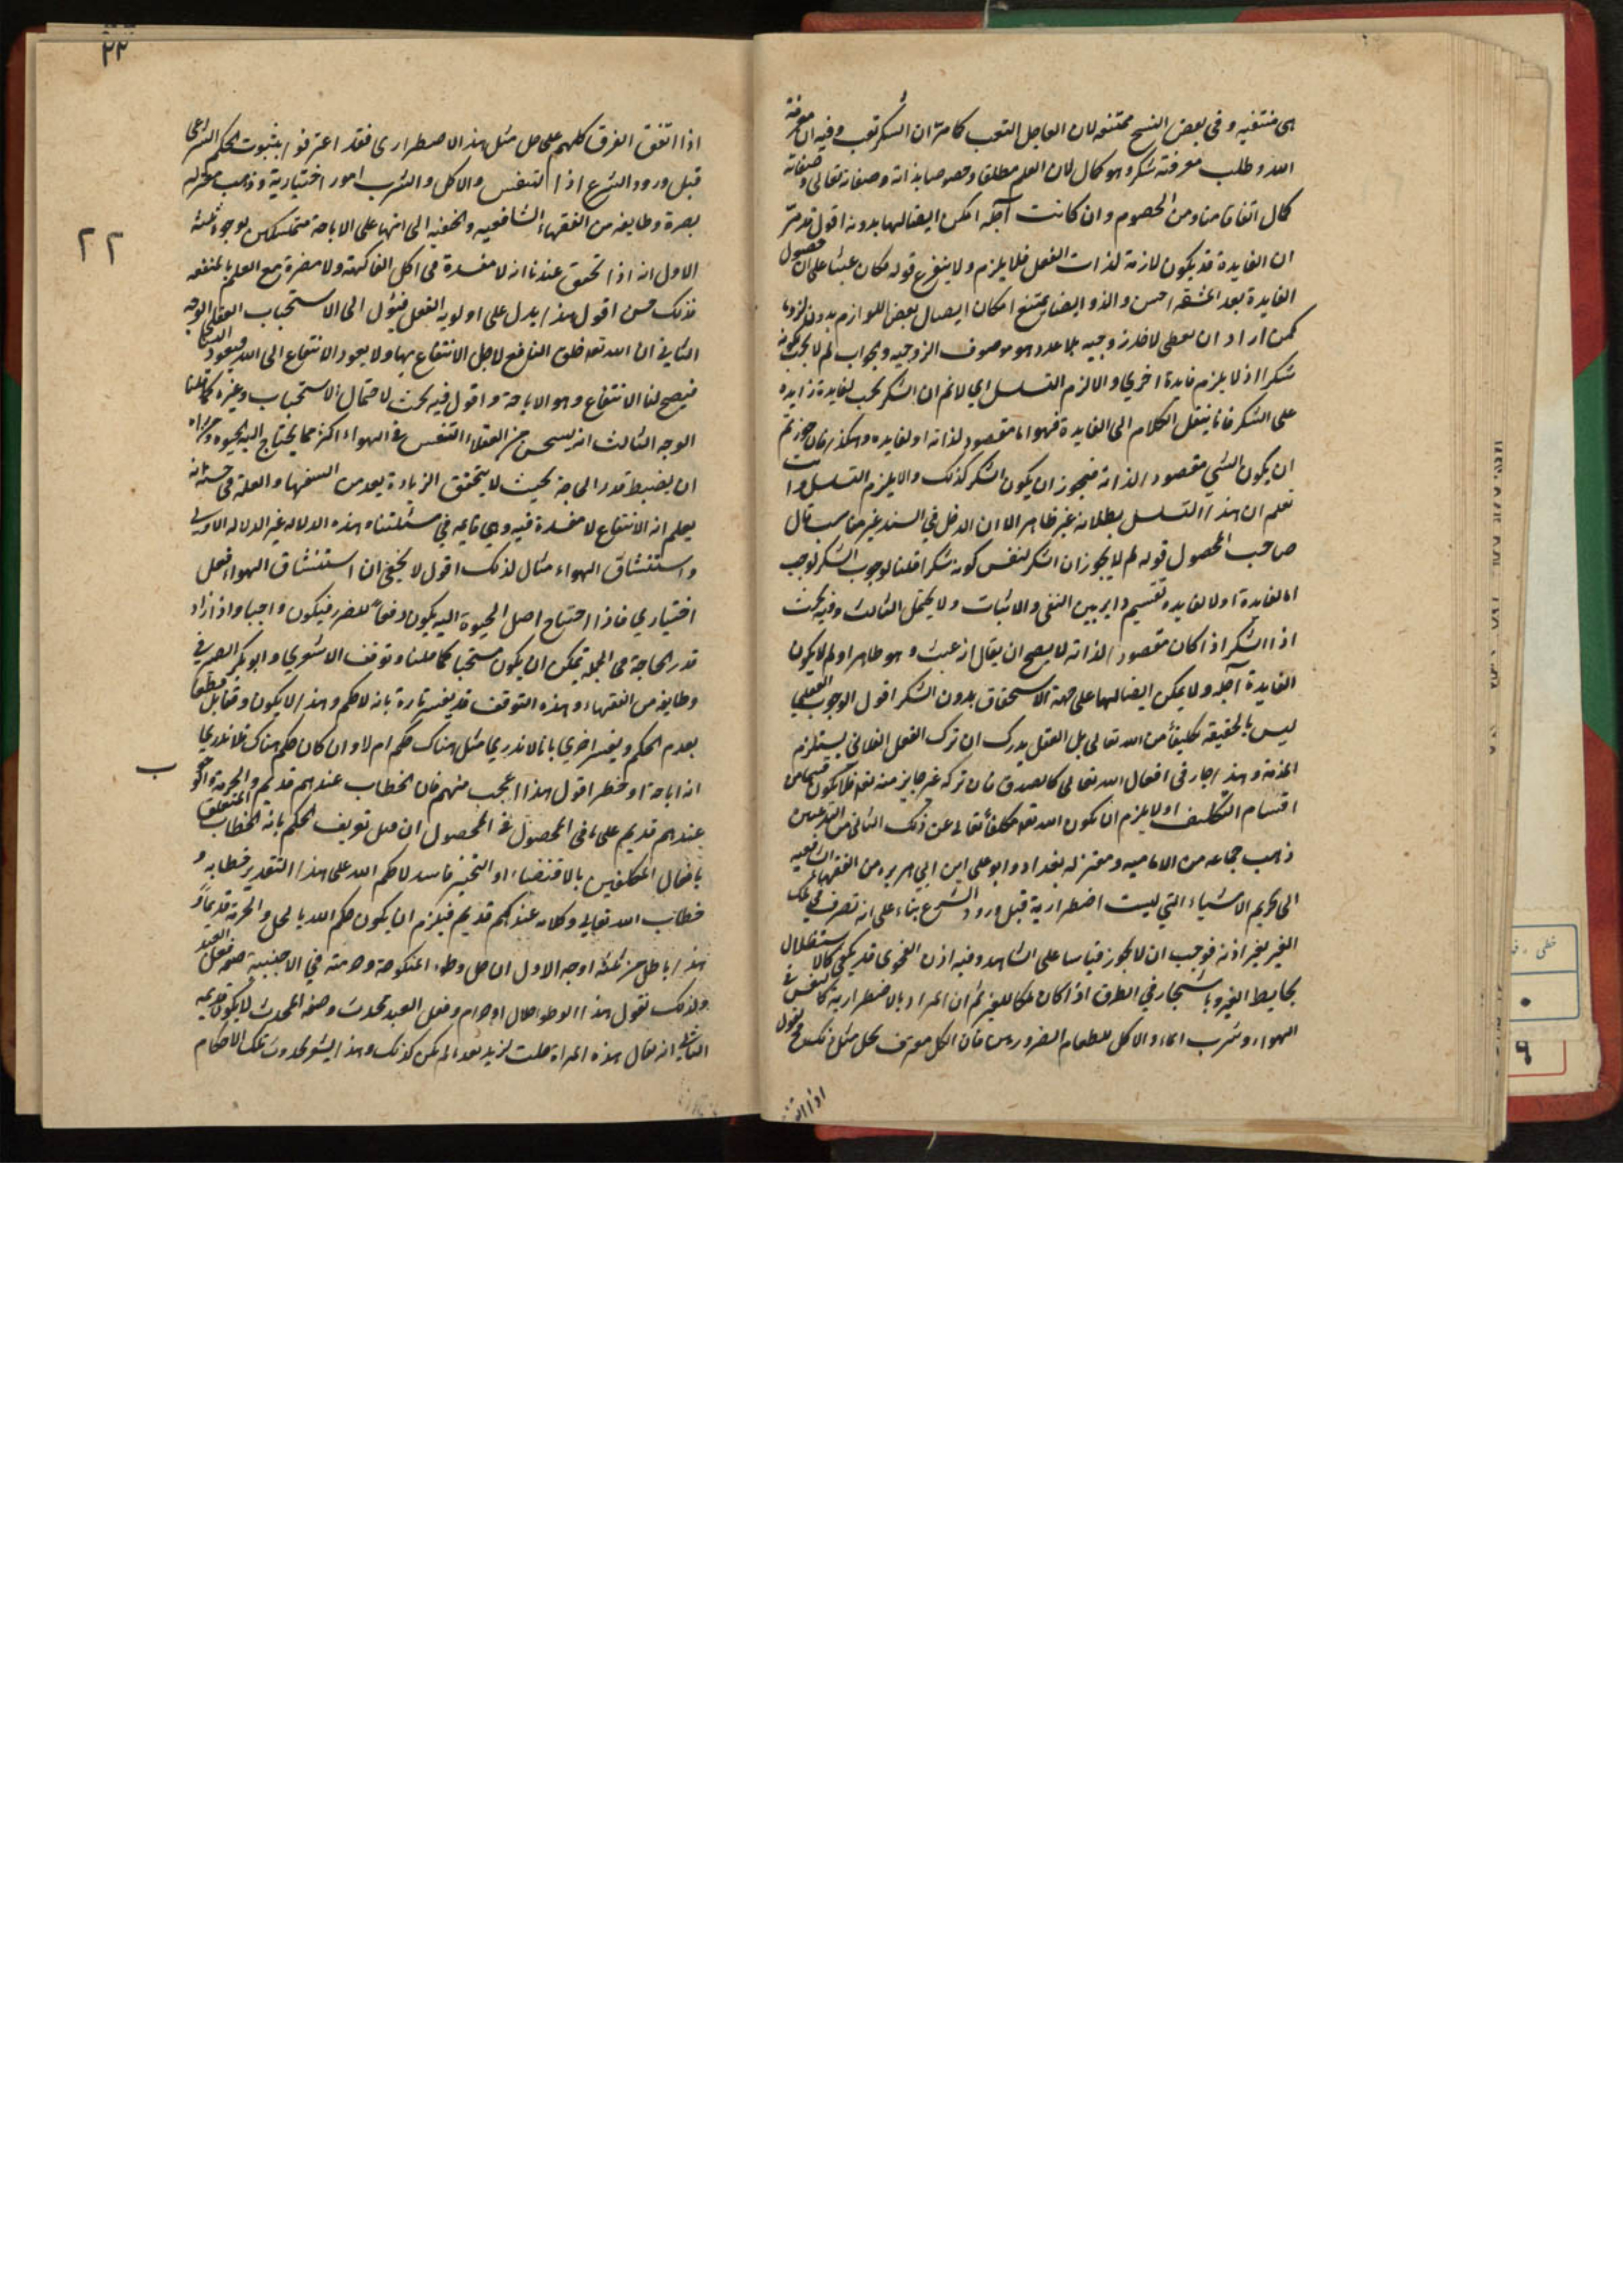 هى منتفيه وفى بعض النسخ ممتنعه لان العاجل التعب كما مر ان الشكر تعب وفيه ان معرفة
الله وطلب معرفته شكر وهو كمال لان العلم مطلقا وخصوصا بذاته وصفاته تعالى وصفاته
كمال اتفاقا منا ومن الخصوم وان كانت آجله امكن ايصالها بدونه اقول قد مر
ان الفايدة قد يكون لازمة لذات الفعل فلا يلزم ولا يتفرع قوله فكان عبثا على ان حصول
الفايدة بعد المشقة احسن والذ وايضا يمتنع امكان ايصال بعض اللوازم بدون ملزومه
كمن اراد ان يعطى لاخذ زوجيه بلا عدد هو موصوف الزوجيه ويجواب لم لا يجب كونه
شكرا اذ لا يلزم فايدة اخرى والا لزم التسلسل اى لا نم ان الشكر يجب لفايدة زايده
على الشكر فانا ينتقل الكلام الى الفايدة فهو اما مقصود لذاته او لفايده وهكذا فان جوزتم
ان يكون الشى مقصودا لذاته فيجوز ان يكون الشكر كذلك والا يلزم التسلسل وانت
تعلم ان هذا التسلسل بطلانه غير ظاهر الا ان الدخل فى السند غير مناسب قال
صاحب المحصول قوله لم لا يجوز ان الشكر لنفس كونه شكرا قلنا لوجوب الشكر لوجب
اما لفايدة او لا لفايده تقسيم داير بين النفى والاثبات ولا يحتمل الثالث وفيه بحث
اذ الشكر اذا كان مقصودا لذاته لا يصح ان يقال انه عبث وهو ظاهر او لم لا يكون
الفايدة آجله ولا يمكن ايصالها على جهة الاستحقاق بدون الشكر اقول الوجوب العقلى
ليس بالحقيقه تكليفا من الله تعالى بل العقل يدرك ان ترك الفعل الفلانى يستلزم
المذمة وهذا جار فى افعال الله تعالى كالصدق فان تركه غير جايز منه تعا فلا يكون قسما من
اقسام التكليف او لا يلزم ان يكون الله تعا مكلفا تعالى عن ذلك الثانى من الفرعين
ذهب جماعه من الاماميه ومعتزله بغداد وابو على ابن ابى هريره من الفقهاء الشافعيه
الى تحريم الاشياء التى ليست اضطرارية قبل ورود الشرع بناء على انه تصرف فى ملك
الغير بغير اذنه فوجب ان لا يجوز قياسا على الشاهد وفيه اذن الفحوى قد يكفى كالاستظلال
بحايط الغير وباشجار فى الطرق اذا كان ملكا للغير ثم ان المراد بالاضطرارية كالتنفس فى
الهواء وشرب الماء والاكل للطعام الضرورى فان الكل معترف بحل مثل ذلك ونقول
اذا اتفق
٢٢
٢٢
اذا اتفق الفرق كلهم على حل مثل هذا الاضطرارى فقد اعترفوا بثبوت الحكم الشرعى
قبل ورود الشرع اذ التنفس والاكل والشرب امور اختيارية وذهب معتزله
بصرة وطايفه من الفقهاء الشافعيه والحنفيه الى انها على الاباحة متمسكين بوجوه ثلثة
الاول انه اذا تحقق عندنا انه لا مفسدة فى اكل الفاكهة ولا مضرة مع العلم بالمنفعه
فذلك حسن اقول هذا يدل على اولوية الفعل فيئول الى الاستحباب العقلى الوجه
الثانى ان الله تعا خلق المنافع لاجل الانتفاع بها ولا يعود الانتفاع الى الله فيعود الينا
فيصح لنا الانتفاع وهو الاباحة واقول فيه بحث لاحتمال الاستحباب وغيره كما قلنا
الوجه الثالث انه يستحسن من العقلاء التنفس فى الهواء اكثر مما يحتاج اليه الحيوه ومن اراد
ان يضبط قدر الحاجة بحيث لا يتحقق الزيادة يعد من السفهاء والعلة فى حسنه انه
يعلم انه الانتفاع لا مفسدة فيه وهى قايمه فى مسئلتنا وهذه الدلاله غير الدلاله الاولى
واستنشاق الهواء مثال لذلك اقول لا يخفى ان استنشاق الهواء فعل
اختيارى فاذا احتاج اصل الحيوة اليه يكون دفعا للضرر فيكون واجبا واذا زاد
قدر الحاجة فى الجملة يمكن ان يكون مستحبا كما قلنا وتوقف الاشعرى وابو بكر الصيرفى
وطايفه من الفقهاء وهذه التوقف قد يفسر تارة بانه لا حكم وهذا لا يكون وقفا بل قطعا
بعدم الحكم ويفسر اخرى بانا لا ندرى مثل هناك حكم ام لا وان كان حكم هناك فلا ندرى
انه اباحة او حظر اقول هذا اعجب منهم فان الخطاب عندهم قديم والحرمة
عندهم قديم على ما فى المحصول فى المحصول ان قيل تعريف الحكم بانه الخطاب المتعلق
بافعال المكلفين بالاقتضاء او التخيير فاسد لان حكم الله على هذا التقدير خطابه و
خطاب الله تعالى وكلامه عندكم قديم فيلزم ان يكون حكم الله بالحل والحرمة قديما و
هذا باطل من ثلثة اوجه الاول ان حل وطء المنكوحة وحرمته فى الاجنبية صفة فعل العبد
ولذلك نقول هذا الوطؤ حلال او حرام وفعل العبد محدث وصفه المحدث لا يكون قديمه
الثانى انه يقال هذه المراة حلت لزيد بعد ما لم يكن كذلك وهذا يشعر بحدوث تلك الاحكام